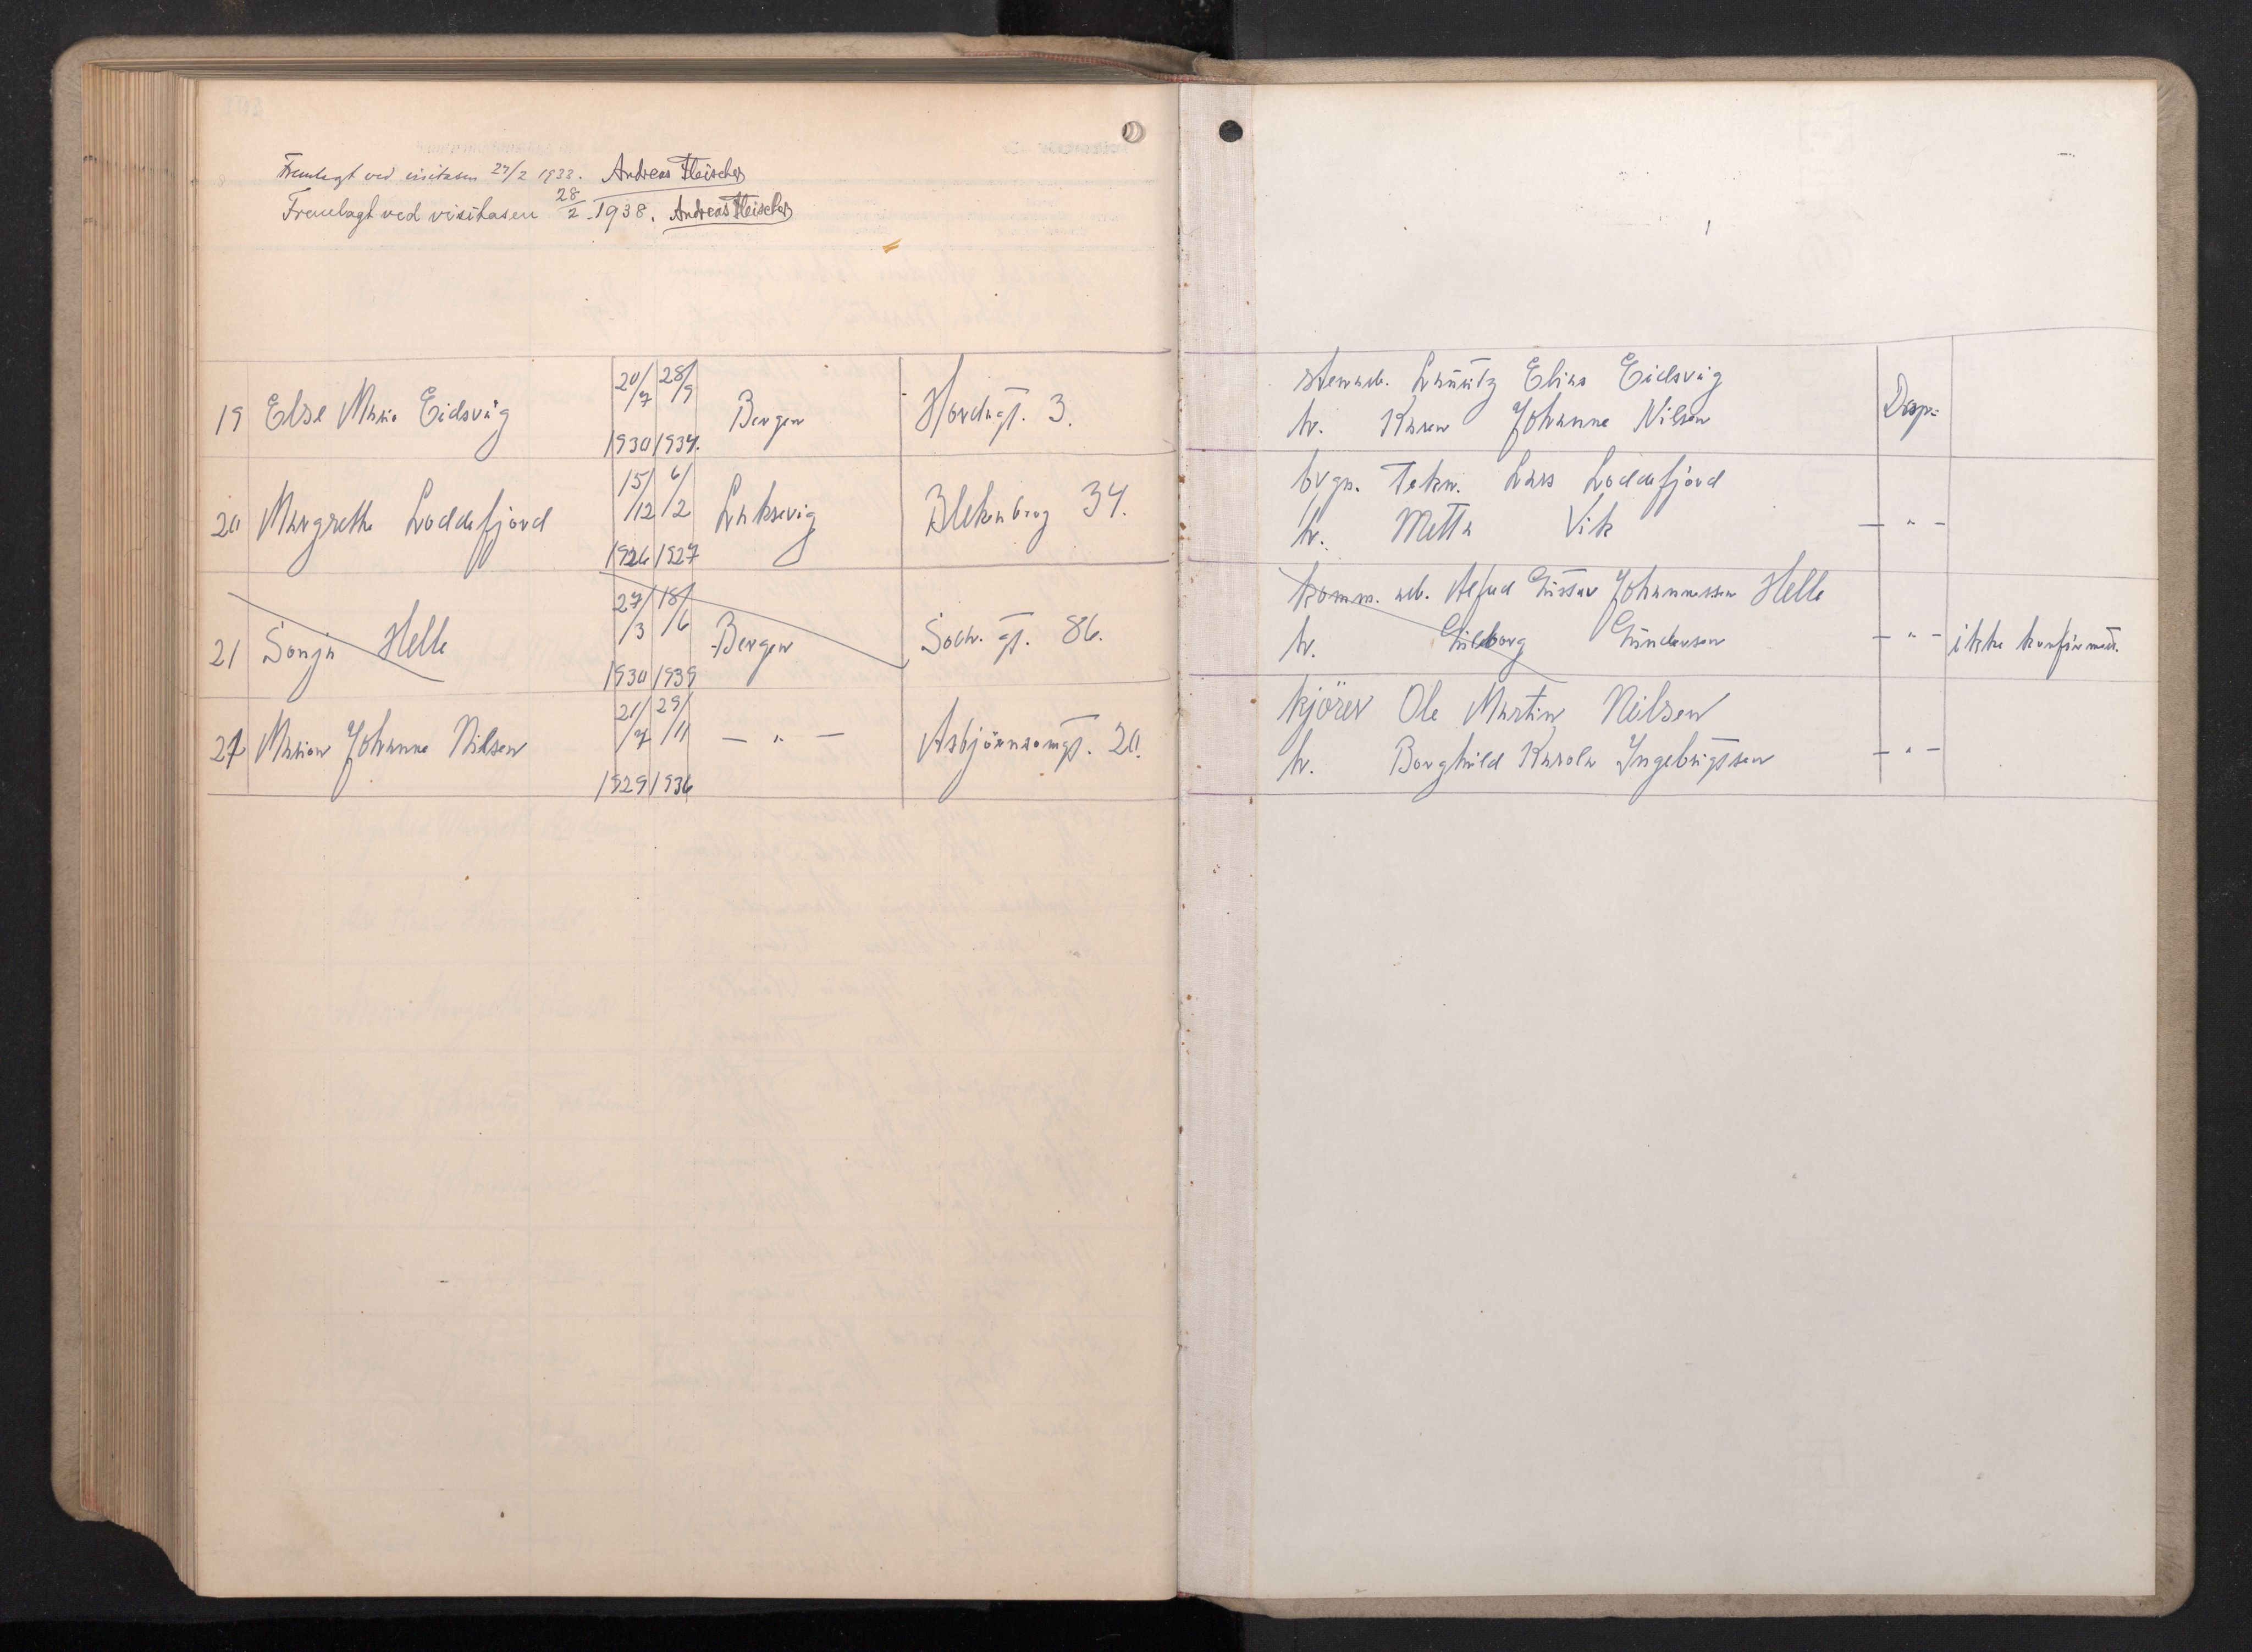 Fremlagt ved visitasen 27/2 1933. Andreas Fleischer
Fremlagt ved visitasen 28/2 - 1938. Andreas Fleischer
19 Else Marie Eidsvåg 20/7 1930 28/9 1934. Bergen Hordagt. 3.
Lauritz Elias Eidsvåg
h. Karen Johanne Nilsen Disp.
20 Margrethe Loddefjord 15/12 1926 6/2 1927 Laksevåg Blekenberg 34.
bygn. tekn. Lars Loddefjord
h. Metta Vik — " —
21 Sonja Helle 27/3 1930 18/6 1939 Bergen gt. 86.
komm. arb. Alfred Gustav Johannessen Helle
h. Gundersen — " — ikke konfirmert.
Marion Johanne Nilsen 21/7 1929 29/11 1936 — " — Asbjörnsensgt. 20.
kjörer Ole Martin Nilsen
h. Borghild Karola Ingebrigtsen — " —